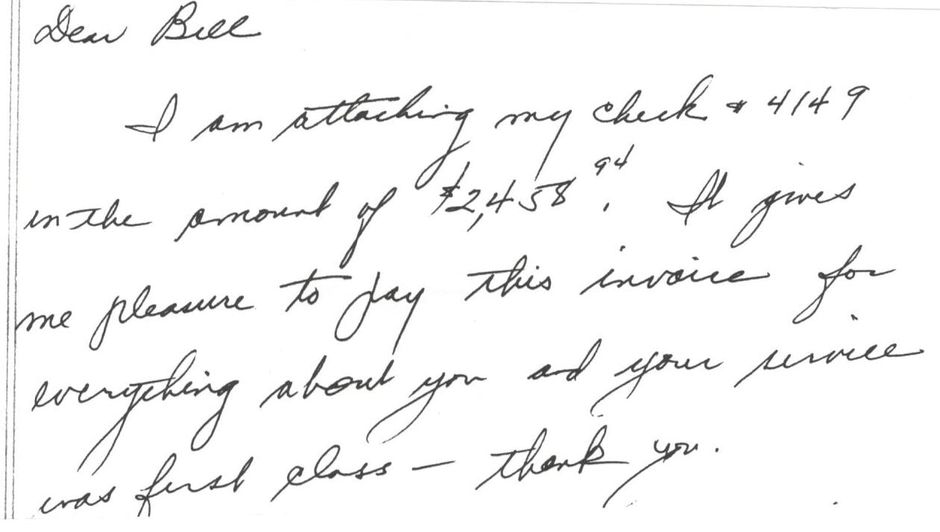 Dear Bill
I am attaching my check # 4149
in the amount of $2,458 94. It gives
me pleasure to pay this invoice for
everything about you and your service
was first class — thank you.